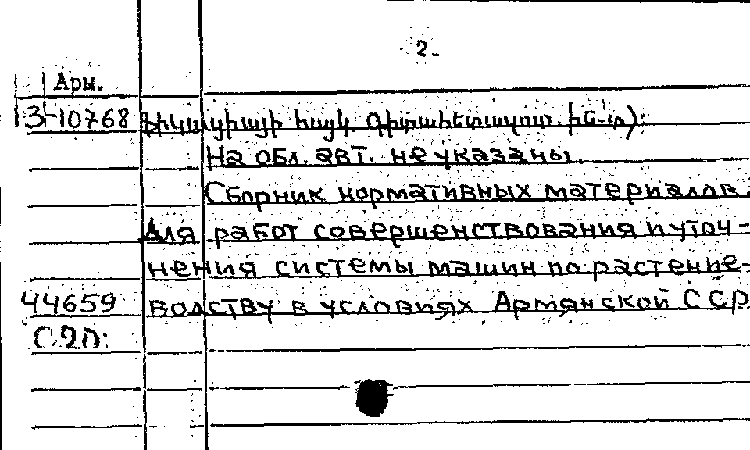 2.
Арм.
З-10768 հայկ. գիտահետազոտ. ին-տ):
На обл. авт. не указаны.
Сборник нормативных материалов
для работ совершенствования и уточ-
нения системы машин по растение-
44659 водству в условиях Армянской ССР